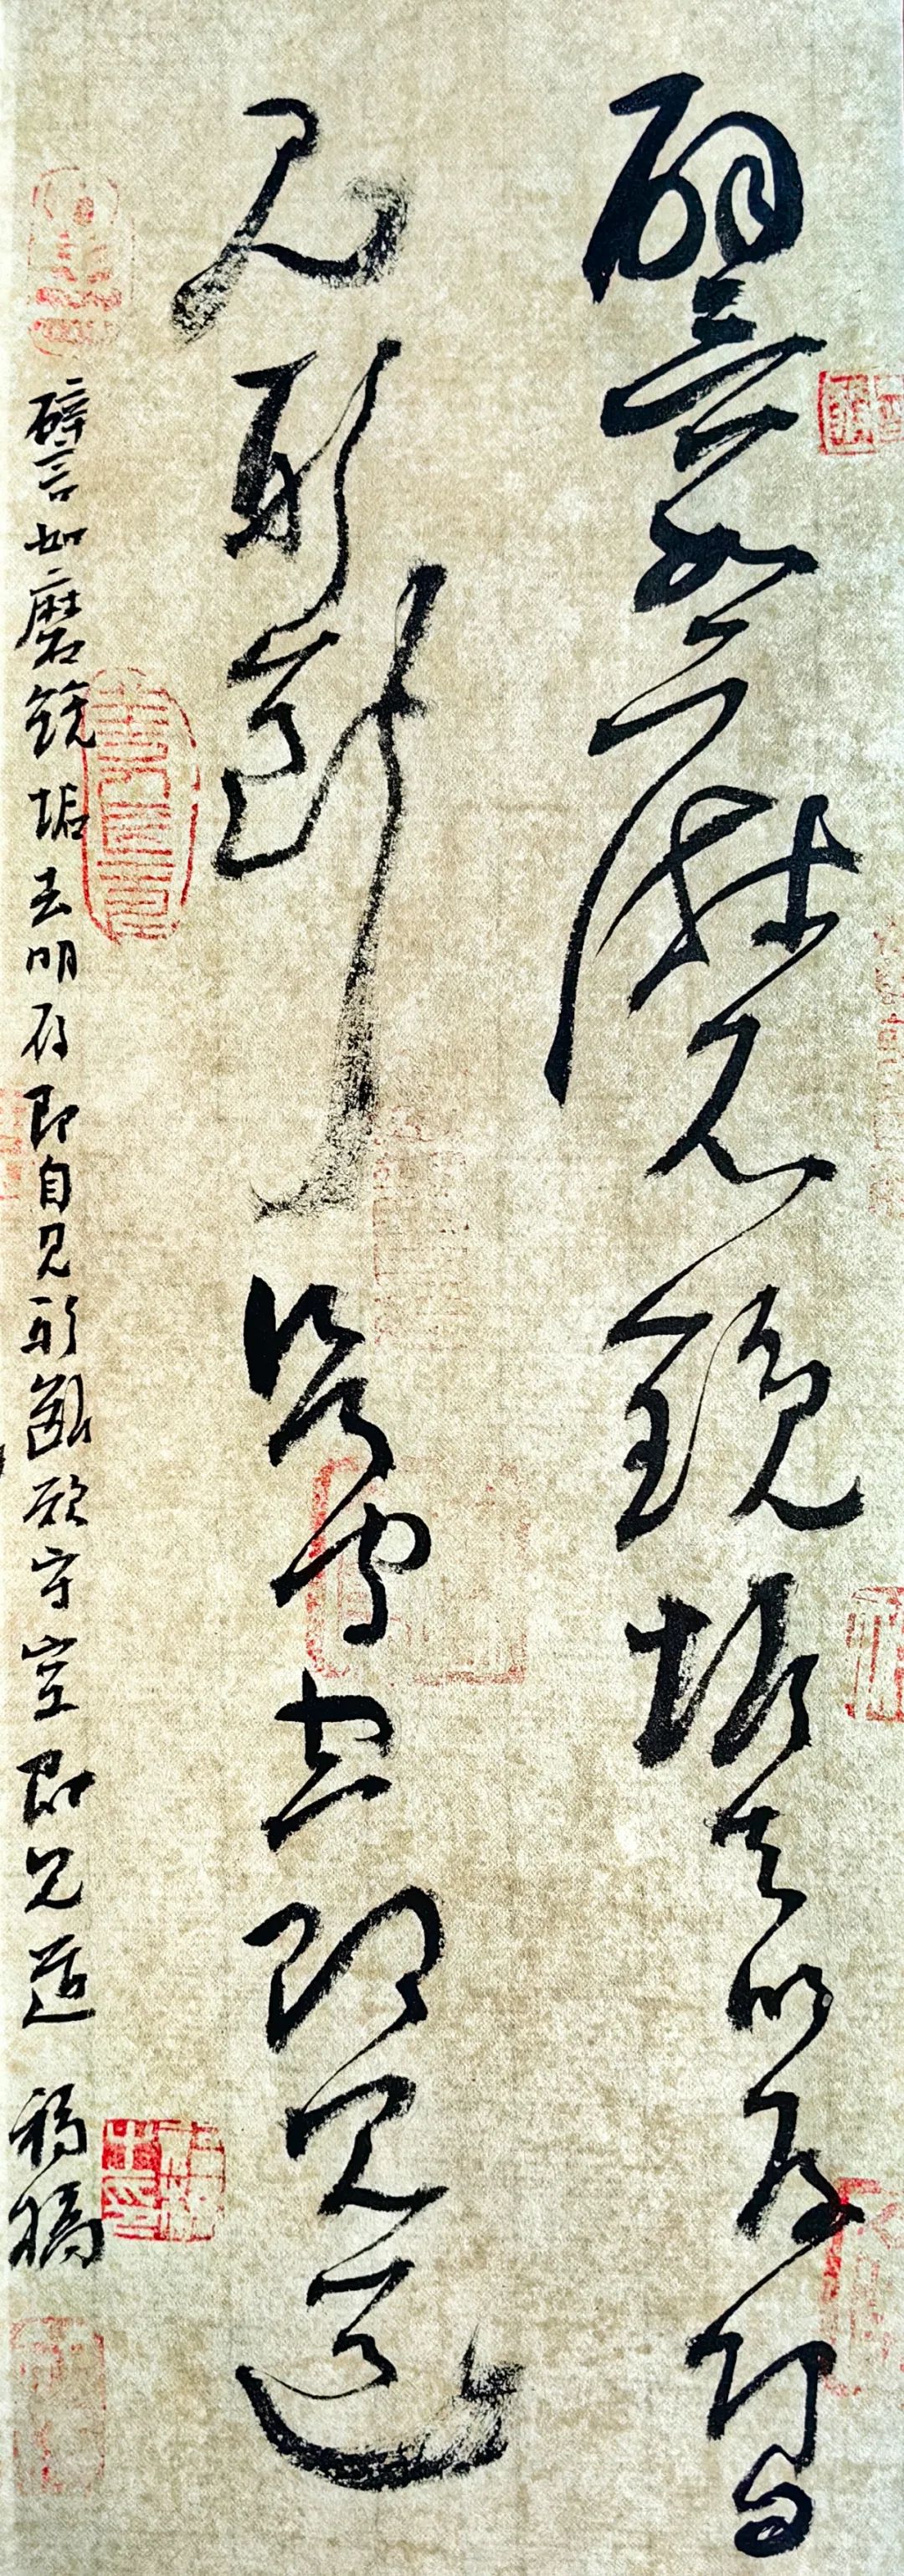 譬如磨鏡垢去明存即自
見形斷欲守空即見道
譬如磨鏡垢去明存即自見形斷欲守空即見道